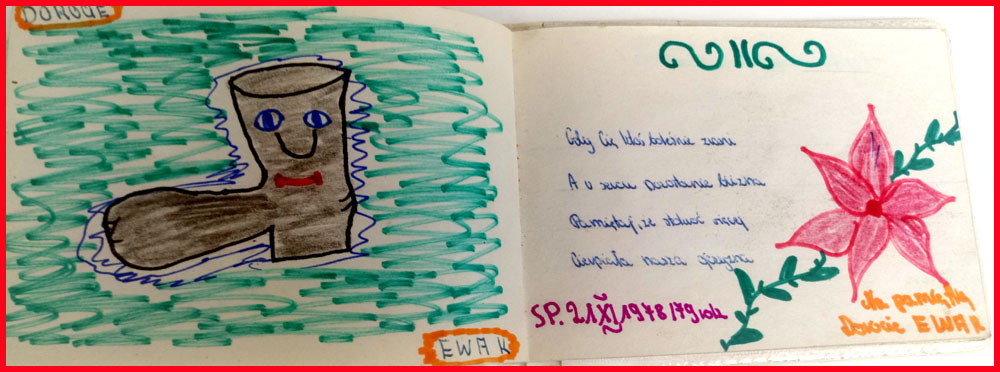 DOROCIE
EWA K
Gdy Cię ktoś boleśnie zrani
A w sercu powstanie blizna
Pamiętaj, że stokroć więcej
Cierpiała nasza ojczyzna
SP. 21 XI 1978/79 rok
Na pamiątkę
Dorocie EWA K